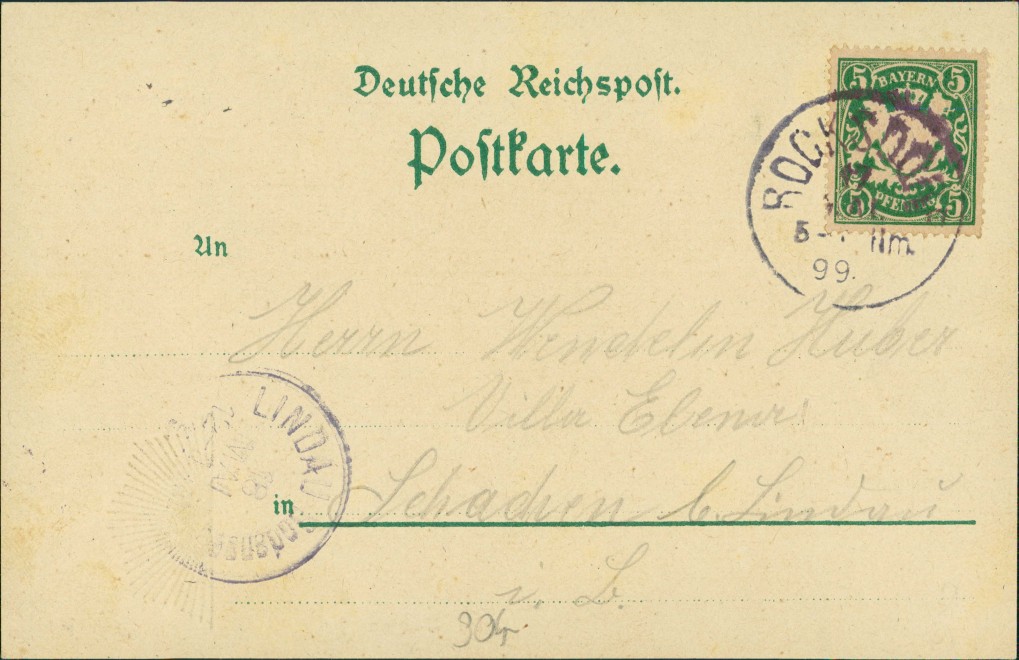 Deutsche Reichspost.
Postkarte.
5 BAYERN 5
5 PFENNIG 5
5- Nm.
99.
An
Herrn Wendelin Huber
Villa Ebener
LINDAU
in Schachen b. Lindau
i. B.